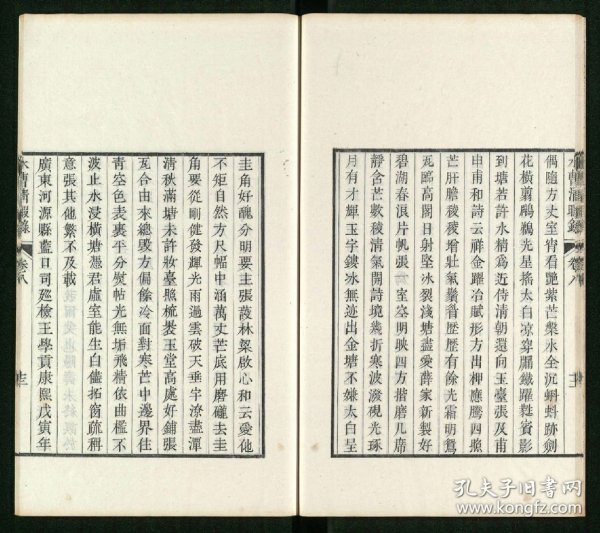 偶隨方丈室窅看艷紫芒槃水全沉蚪蚪跡劍
花橫翦鸊鵜光星搖太白凉穿牖鐵躍蕤賓影
到塘若許水精爲近侍清朝還向玉臺張及甫
申甫和詩云祥金躍冶賦形方出柙應騰四㨿
芒肝膽稜稜增壯氣鬚眉歷歷有餘光霜明鴛
瓦臨高閣日射堅冰裂淺塘盡愛薛家新製好
碧湖春浪片帆張一室空明映四方揩磨几席
靜含芒數稜清氣開詩境幾折寒波潑硯光琢
月有才輝玉宇鏤冰無迹出金塘不嫌太白呈
水曹清暇錄
卷八
圭角好醜分明要主張葭林粱啟心和云愛他
不矩自然方尺幅中涵萬丈芒底用磨礲去圭
角要從剛健發輝光雨過雲破天垂宇潦盡潭
清秋滿塘未許妝臺照梳裹玉堂高處好鋪張
瓦合由來總毁方偏餘冷面對寒芒中邊界住
青空色表裏平分熨帖光無垢飛精依曲檻不
波止水浸橫塘憑君虛室能生白儘拓窗疏稱
意張其他繁不及載
廣東河源縣藍口司廵檢王學貢康熙戊寅年
水曹清暇錄
卷八
孔夫子旧书网
www.kongfz.com